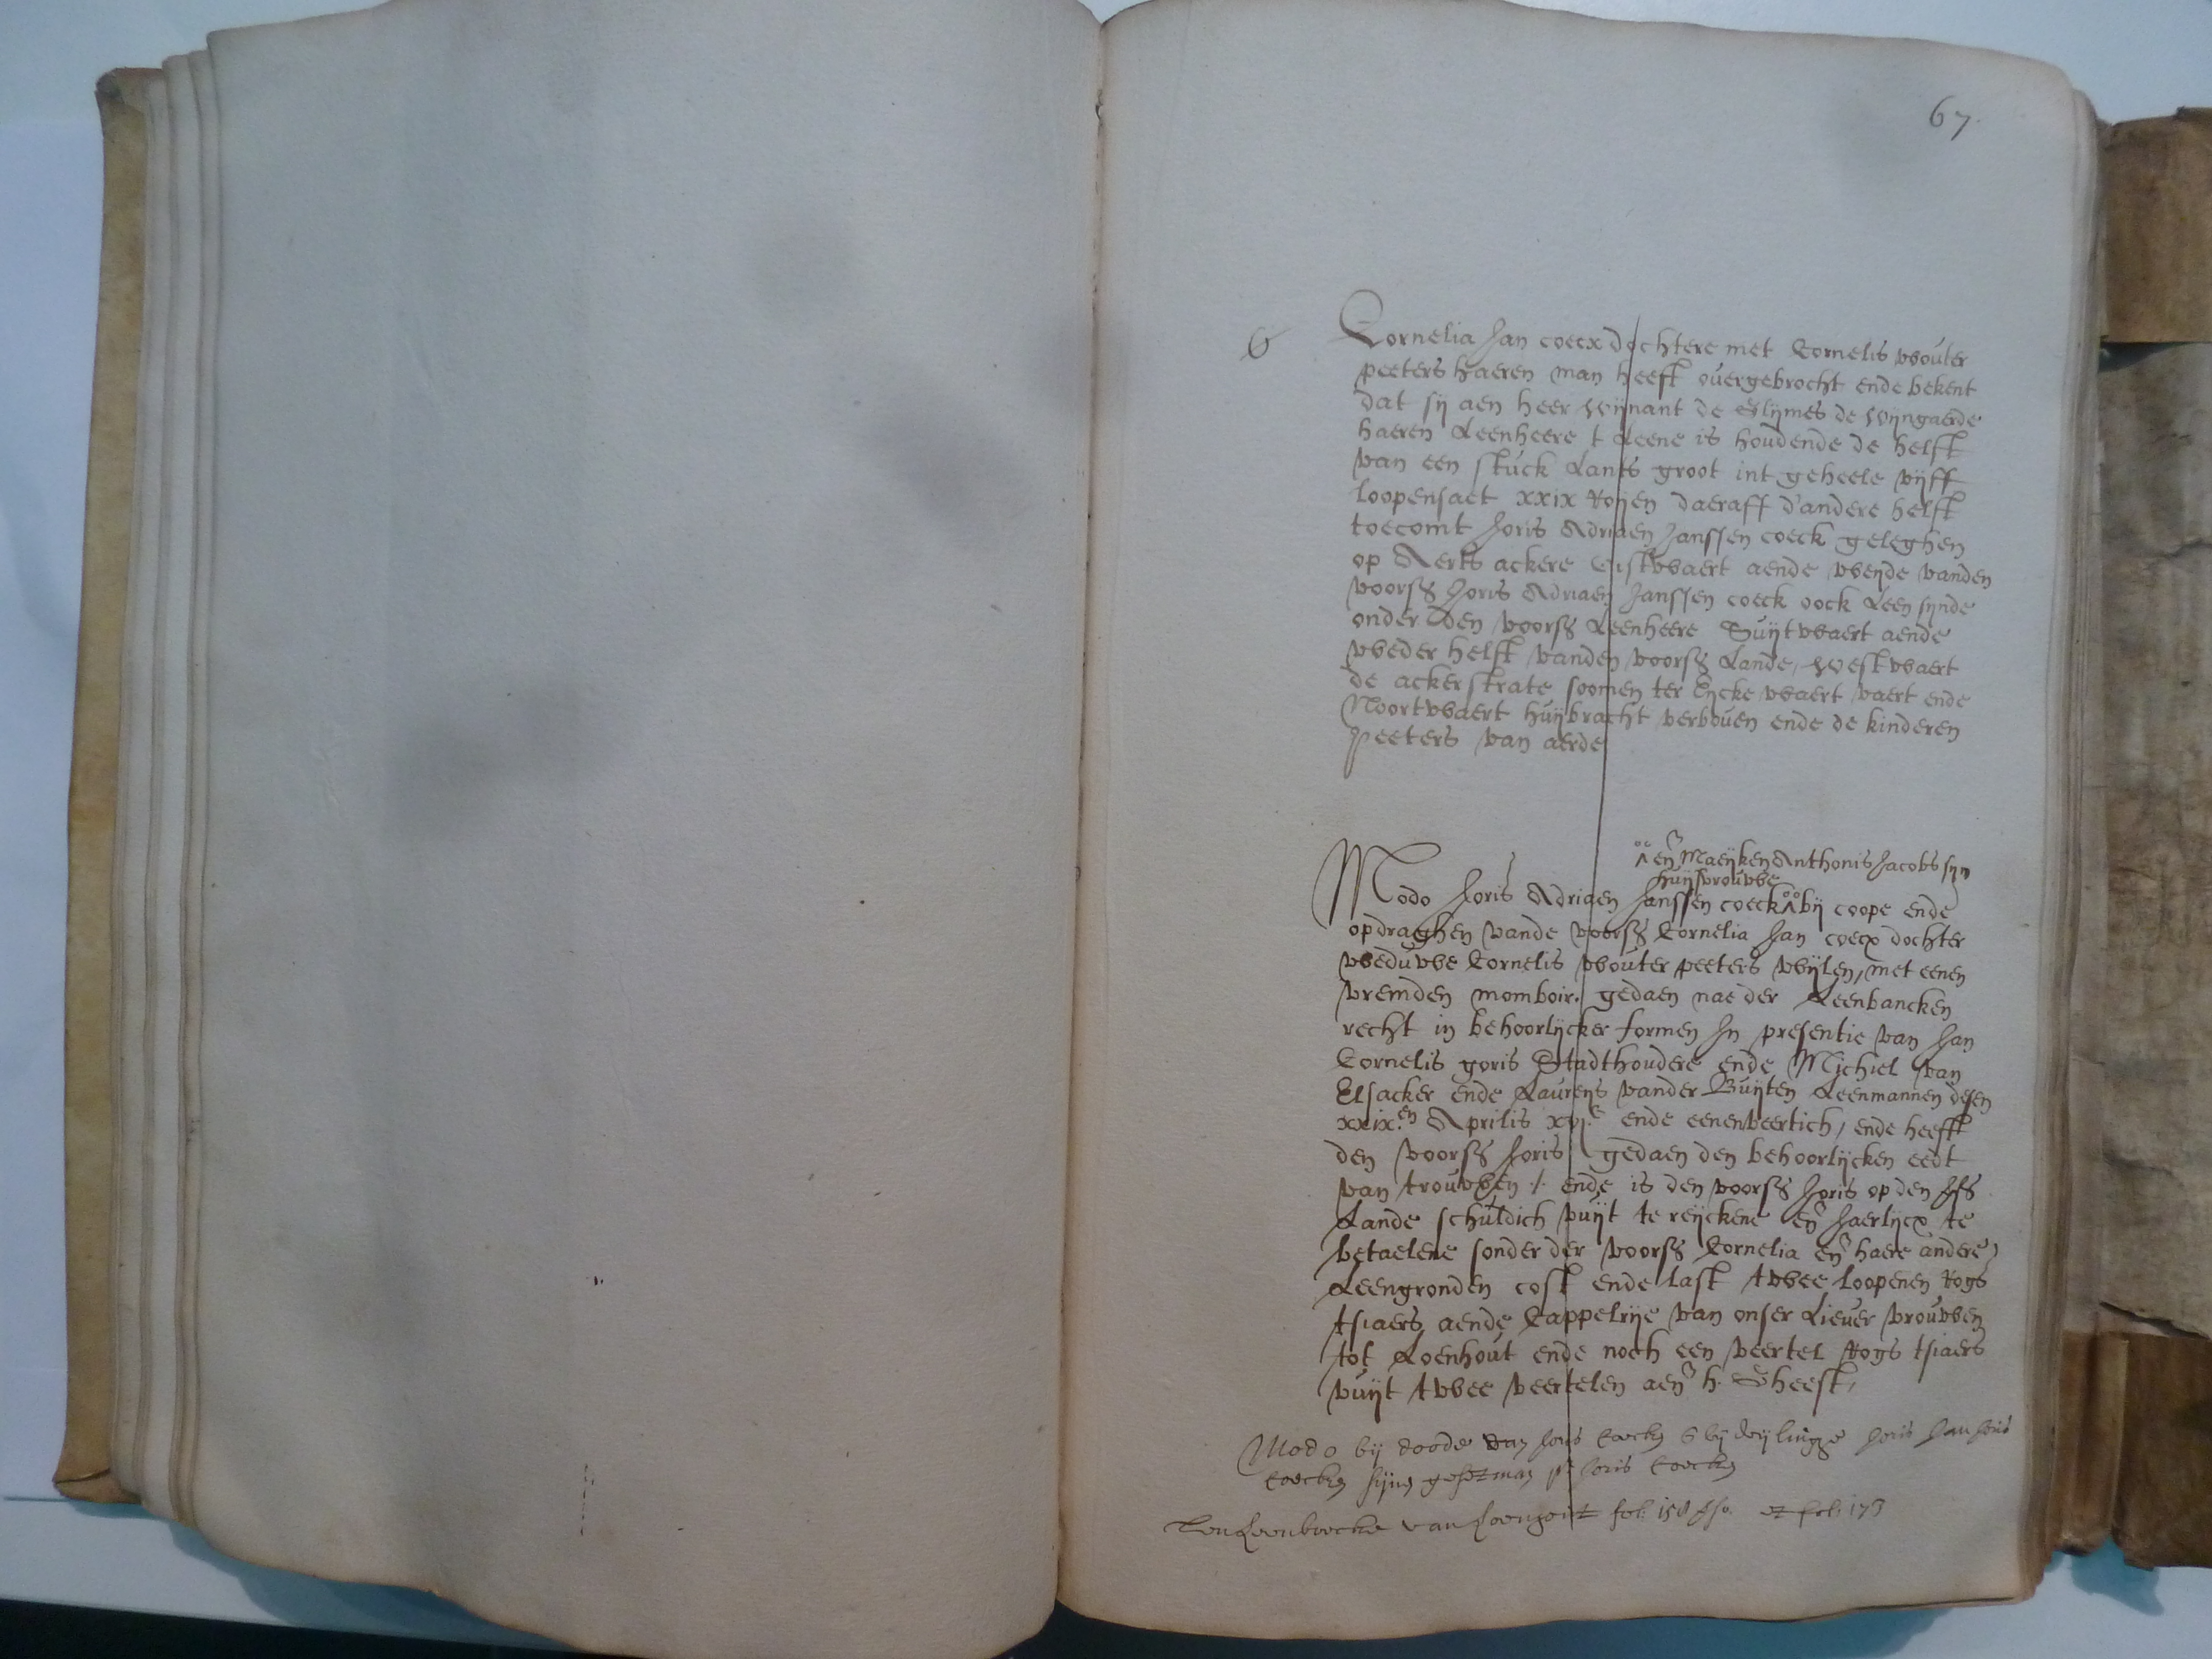 67.
6
Cornelia Jan coecx dochtere met Cornelis wouter
peeters haeren man heeft ouergebrocht ende bekent
dat sij aen heer wijnant de Glijmes de wijngaerde
haeren Leenheere t Leene is houdende de helft
van een stuck Lants groot int geheele vijff
loopensaet xxix Royen daeraff d'andere helft
toecomt Joris Adriaen Janssen coeck geleghen
op Aerts ackere oistwaert aende weyde vanden
voors Joris Adriaen Janssen coeck oock Leen sijnde
onder den voors Leenheere Suijtwaert aende
weder helft vanden voors Lande, westwaert
de ackerstrate soomen ter Eycke waert vaert ende
Noortwaert huijbracht verbouen ende de kinderen
peeters van aerde
en Maeyken Anthonis Jacobs syn
huijsvrouwe
Modo Joris Adriaen Janssen coeck bij coope ende
opdraghen vande voors Cornelia Jan coecx dochter
weduwe Cornelis wouter peeters wijlen, met eenen
vremden momboir. gedaen nae der Leenbancken
recht in behoorlijcker formen In presentie van Jan
Cornelis goris Stadthoudere ende Michiel van
Elsacker ende Laureys vander Buijten Leenmannen desen
xxix.en Aprilis xvj.c ende eenenveertich, ende heefft
den voors Joris gedaen den behoorlijcken eedt
van trouwen ./. ende is den voors Joris op den
Lande schuldich vuijt te reyckene en Jaerlijcx te
betaelene sonder der voors Cornelia en haere andere
Leengronden cost ende last twee loopenen Rogs
tsiaers aende Cappelrije van onser Liever vrouwen
tot Loenhout ende noch een veertel Rogs tsiaers
vuijt twee veertelen aen h. Gheest,
Modo bij doode van Joris Coeckx bij deylinge Joris Jan Joris
Coeckx sijn Joris Coeckx
Leenboecke van Loenhout fol: 158 et fol: 173